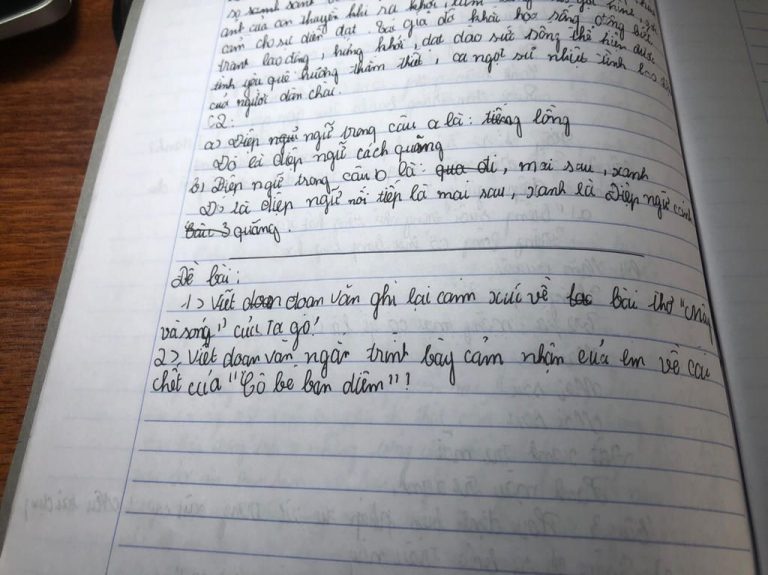 so sánh
ảnh của con thuyền khi ra khơi,
cảm cho sự diễn đạt. Tác giả đã khắc họa sống động bức
tranh lao động, hứng khởi, dạt dào sức sống thể hiện được
tình yêu quê hương thắm thiết, ca ngợi sự nhiệt tình lao
của người dân chài.
C2:
a) Điệp ngữ trong câu a là: tiếng lồng
Đó là điệp ngữ cách quãng
b) Điệp ngữ trong câu b là: qua đi, mai sau, xanh
Đó là điệp ngữ nối tiếp là mai sau, xanh là Điệp ngữ cách
quãng.
Đề bài:
1> Viết đoạn đoạn văn ghi lại cảm xúc về bài thơ "Mây
và sóng" của Ta go!
2> Viết đoạn văn ngắn trình bày cảm nhận của em về cái
chết của "Cô bé bán diêm"!